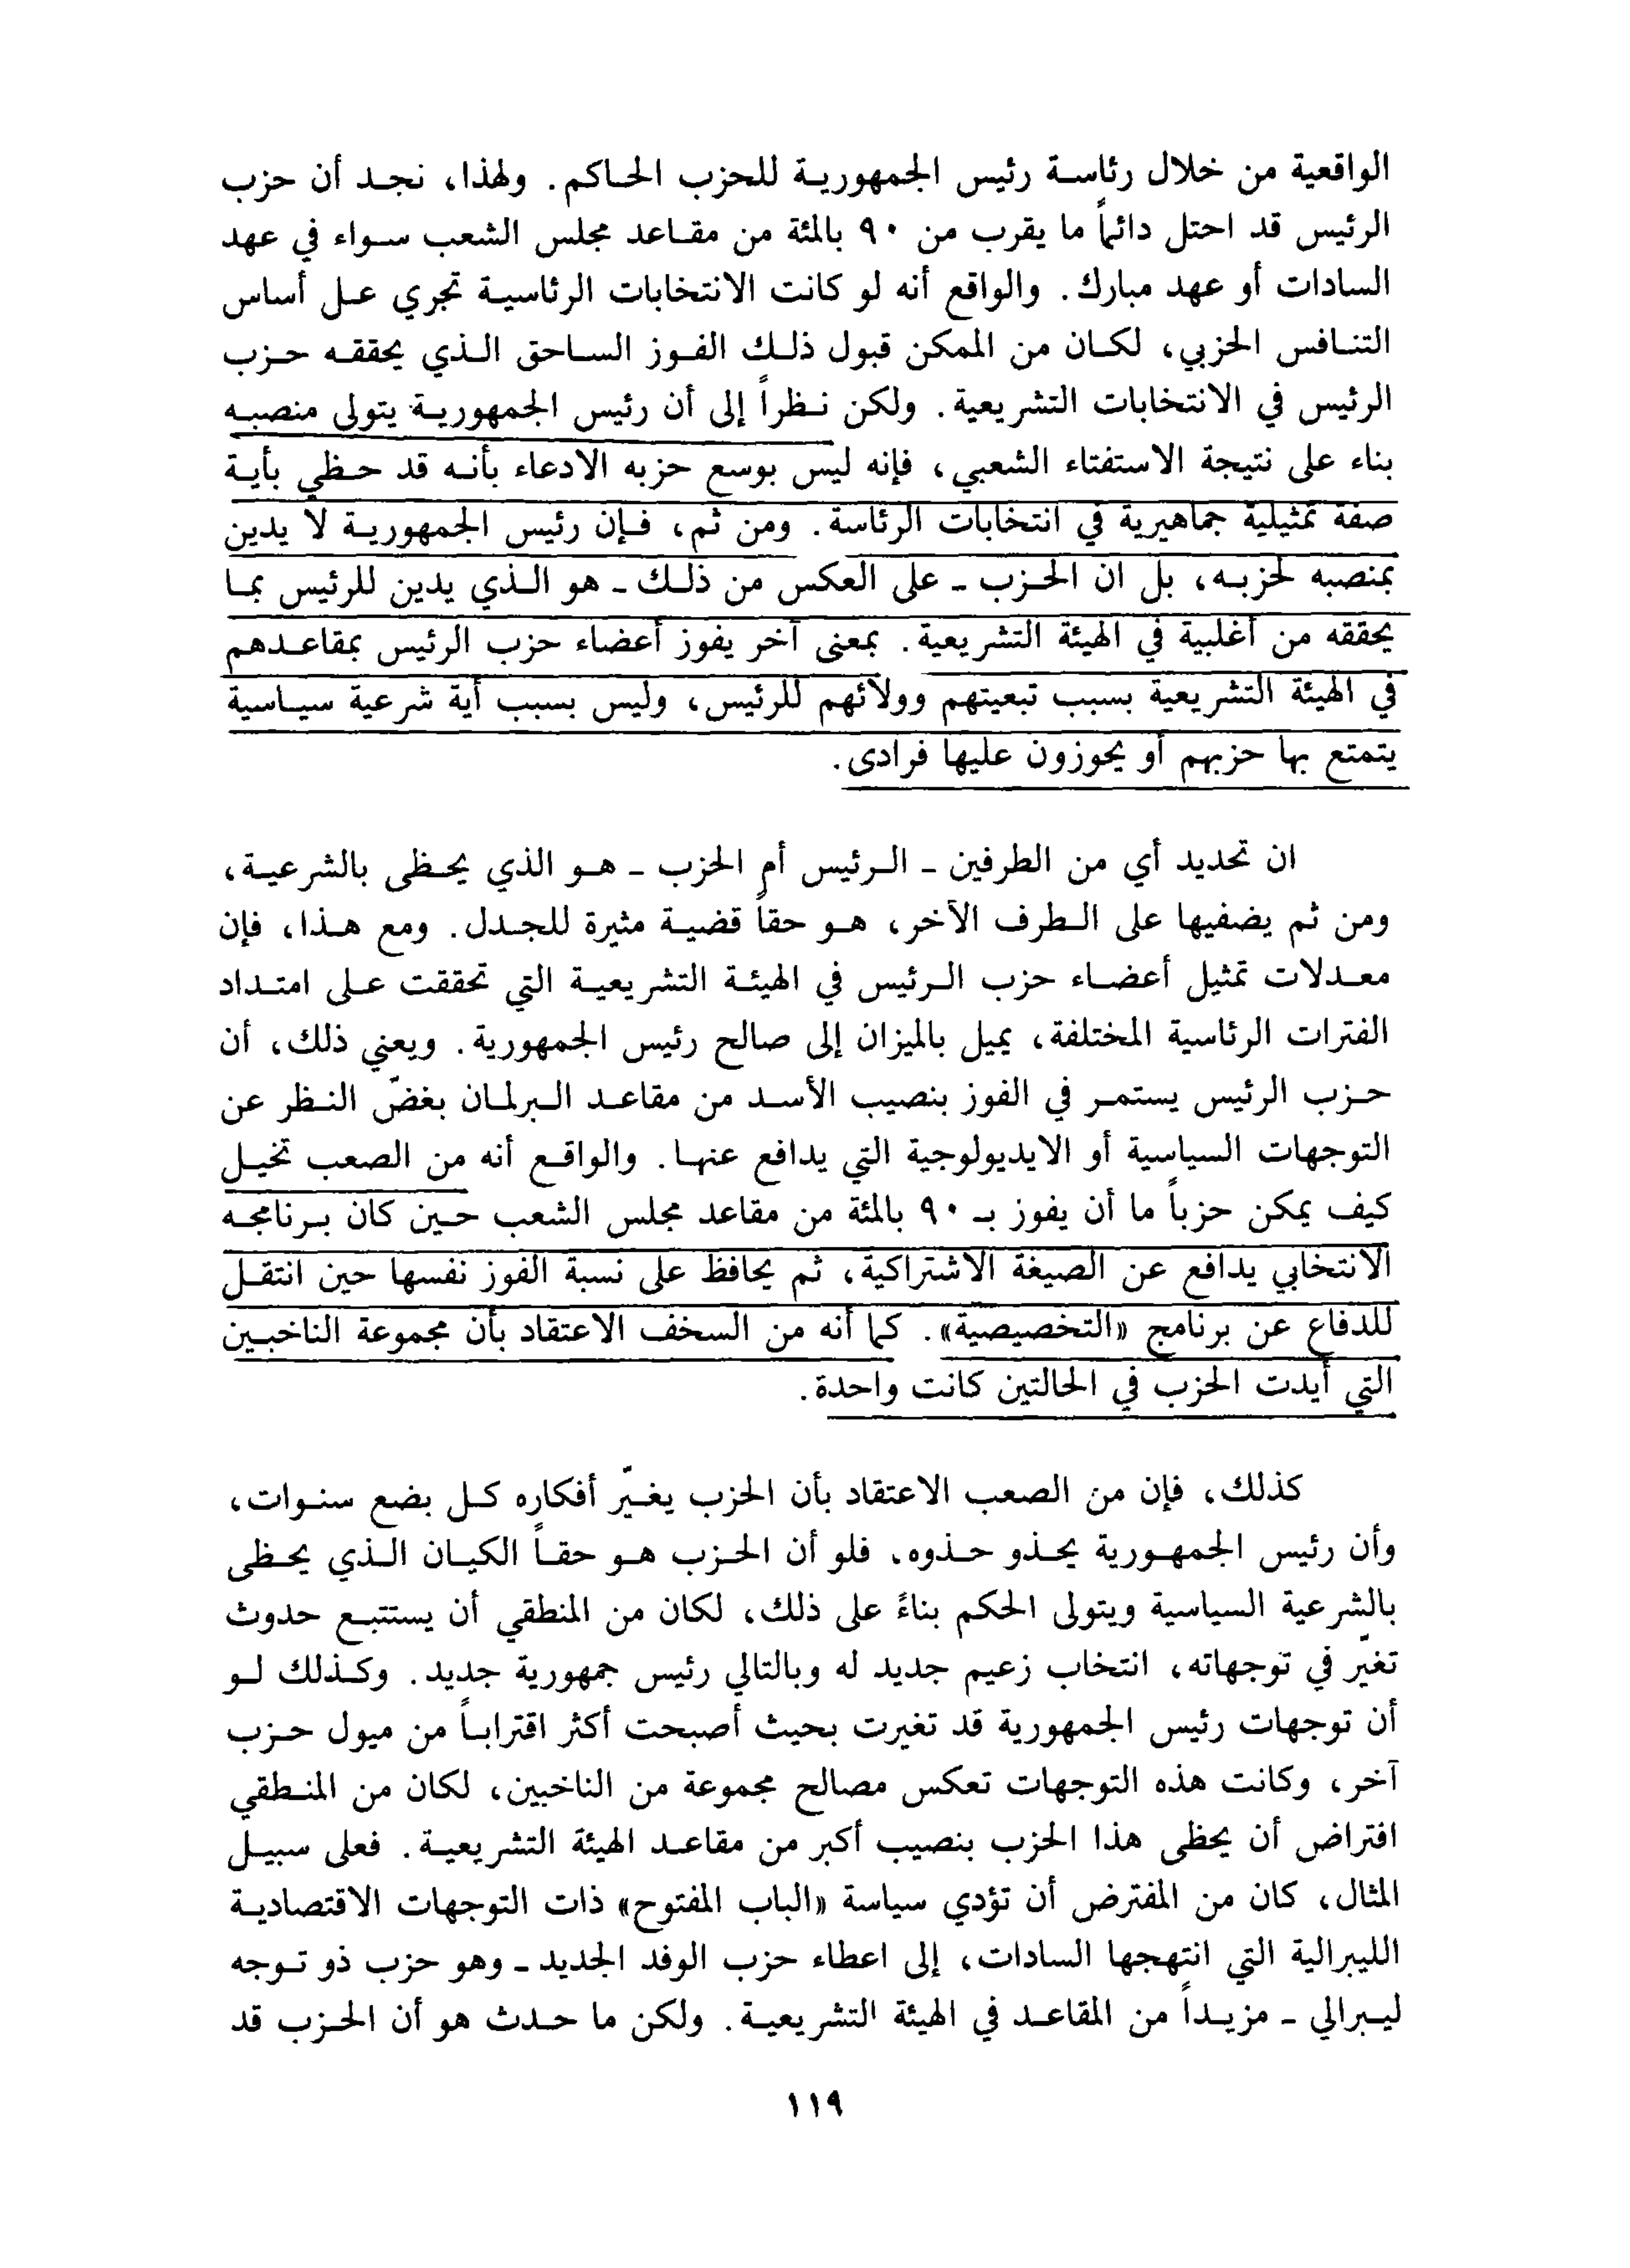 الواقعية من خلال رئاسة رئيس الجمهورية للحزب الحاكم. ولهذا، نجد أن حزب
الرئيس قد احتل دائماً ما يقرب من ٩٠ بالمئة من مقاعد مجلس الشعب سواء في عهد
السادات أو عهد مبارك. والواقع أنه لو كانت الانتخابات الرئاسية تجري على أساس
التنافس الحزبي، لكان من الممكن قبول ذلك الفوز الساحق الذي يحققه حزب
الرئيس في الانتخابات التشريعية. ولكن نظراً إلى أن رئيس الجمهورية يتولى منصبه
بناء على نتيجة الاستفتاء الشعبي، فإنه ليس بوسع حزبه الادعاء بأنه قد حظي بأية
صفة تمثيلية جماهيرية في انتخابات الرئاسة. ومن ثم، فإن رئيس الجمهورية لا يدين
بمنصبه لحزبه، بل ان الحزب - على العكس من ذلك - هو الذي يدين للرئيس بما
يحققه من أغلبية في الهيئة التشريعية. بمعنى آخر يفوز أعضاء حزب الرئيس بمقاعدهم
في الهيئة التشريعية بسبب تبعيتهم وولائهم للرئيس، وليس بسبب أية شرعية سياسية
يتمتع بها حزبهم أو يحوزون عليها فرادى.
ان تحديد أي من الطرفين - الرئيس أم الحزب - هو الذي يحظى بالشرعية،
ومن ثم يضفيها على الطرف الآخر، هو حقاً قضية مثيرة للجدل. ومع هذا، فإن
معدلات تمثيل أعضاء حزب الرئيس في الهيئة التشريعية التي تحققت على امتداد
الفترات الرئاسية المختلفة، يميل بالميزان إلى صالح رئيس الجمهورية. ويعني ذلك، أن
حزب الرئيس يستمر في الفوز بنصيب الأسد من مقاعد البرلمان بغضّ النظر عن
التوجهات السياسية أو الايديولوجية التي يدافع عنها. والواقع أنه من الصعب تخيل
كيف يمكن حزباً ما أن يفوز بـ ٩٠ بالمئة من مقاعد مجلس الشعب حين كان برنامجه
الانتخابي يدافع عن الصيغة الاشتراكية، ثم يحافظ على نسبة الفوز نفسها حين انتقل
للدفاع عن برنامج «التخصيصية». كما أنه من السخف الاعتقاد بأن مجموعة الناخبين
التي أيدت الحزب في الحالتين كانت واحدة.
كذلك، فإن من الصعب الاعتقاد بأن الحزب يغيّر أفكاره كل بضع سنوات،
وأن رئيس الجمهورية يحذو حذوه. فلو أن الحزب هو حقاً الكيان الذي يحظى
بالشرعية السياسية ويتولى الحكم بناءً على ذلك، لكان من المنطقي أن يستتبع حدوث
تغيّر في توجهاته، انتخاب زعيم جديد له وبالتالي رئيس جمهورية جديد. وكذلك لو
أن توجهات رئيس الجمهورية قد تغيرت بحيث أصبحت أكثر اقتراباً من ميول حزب
آخر، وكانت هذه التوجهات تعكس مصالح مجموعة من الناخبين، لكان من المنطقي
افتراض أن يحظى هذا الحزب بنصيب أكبر من مقاعد الهيئة التشريعية. فعلى سبيل
المثال، كان من المفترض أن تؤدي سياسة «الباب المفتوح» ذات التوجهات الاقتصادية
الليبرالية التي انتهجها السادات، إلى اعطاء حزب الوفد الجديد - وهو حزب ذو توجه
ليبرالي - مزيداً من المقاعد في الهيئة التشريعية. ولكن ما حدث هو أن الحزب قد
١١٩